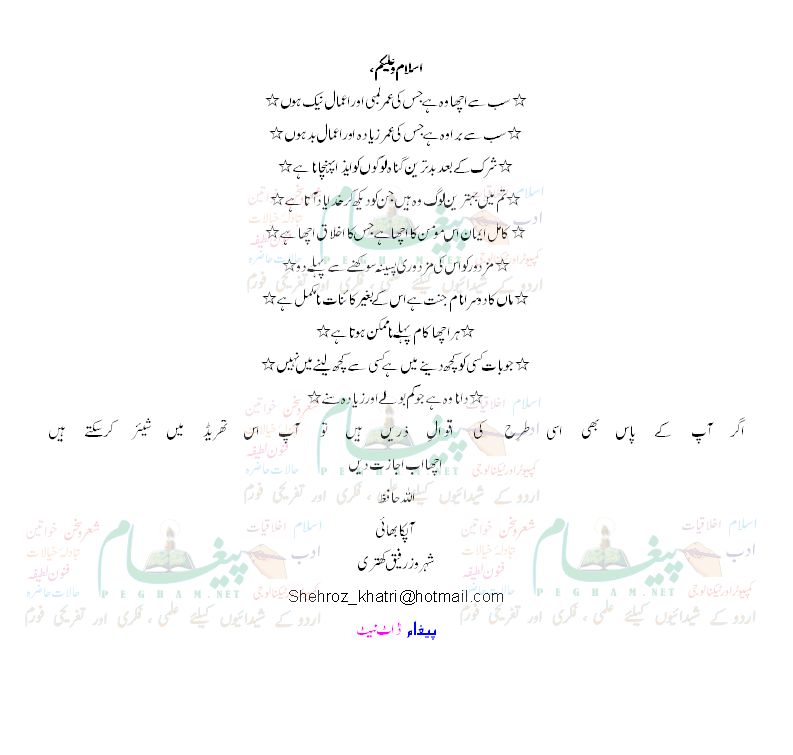 اسلام وعلیکم،
☆ سب سے اچھا وہ ہے جس کی عمر لمبی اور اعمال نیک ہوں ☆
☆ سب سے برا وہ ہے جس کی عمر زیادہ اور اعمال بد ہوں ☆
☆ شرک کے بعد بدترین گناہ لوگوں کو ایذا پہنچانا ہے ☆
☆ تم میں بہترین لوگ وہ ہیں جن کو دیکھ کر خدا یاد آتا ہے ☆
☆ کامل ایمان اس مومن کا اچھا ہے جس کا اخلاق اچھا ہے ☆
☆ مزدور کو اس کی مزدوری پسینہ سوکھنے سے پہلے دو ☆
☆ ماں کا دوسرا نام جنت ہے اس کے بغیر کائنات نامکمل ہے ☆
☆ ہر اچھا کام پہلے ناممکن ہوتا ہے ☆
☆ جو بات کسی کو کچھ دینے میں ہے کسی سے کچھ لینے میں نہیں ☆
☆ دانا وہ ہے جو کم بولے اور زیادہ سنے ☆
اگر آپ کے پاس بھی اسی طرح کی قوال ذریں ہیں تو آپ اس تھریڈ میں شیئر کرسکتے ہیں
اچھا اب اجازت دیں
اللہ حافظ
آپکا بھائی
شہروز رفیق کھتری
Shehroz_khatri@hotmail.com
پیغام ڈاٹ نیٹ
اسلام اخلاقیات
شعروسخن خواتین
ادب
تبادلۂ خیالات
پیغام
فنون لطیفہ
کمپیوٹر اور ٹیکنالوجی
حالات حاضرہ
PEGHAM.NET
اردو کے شیدائیوں کیلئے علمی ، فکری اور تفریحی فورم